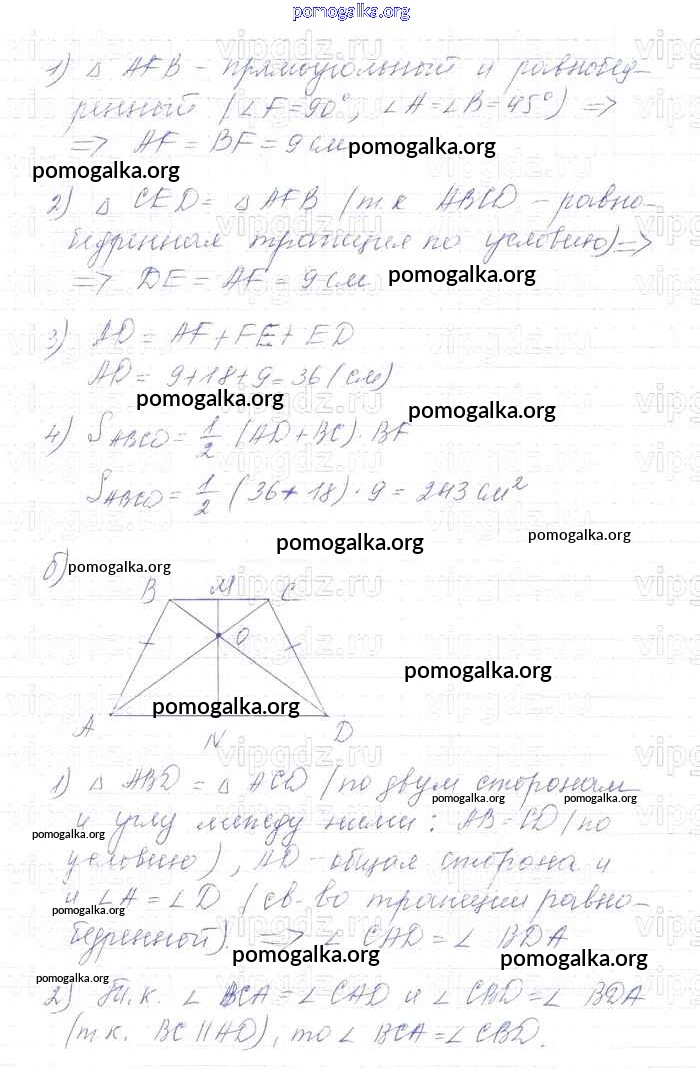 pomogalka.org
1) △ AFB - прямоугольный и равнобед-
ренный (∠F=90°, ∠A=∠B=45°) =>
=> AF = BF = 9 см
pomogalka.org
pomogalka.org
2) △ CED = △ AFB (т.к ABCD - равно-
бедренная трапеция по условию) =>
=> DE = AF = 9 см
pomogalka.org
3) AD = AF + FE + ED
AD = 9+18+9 = 36 (см)
pomogalka.org
pomogalka.org
4) S ABCD = 1/2 (AD + BC) · BF
S ABCD = 1/2 (36 + 18) · 9 = 243 см²
pomogalka.org
pomogalka.org
б)
pomogalka.org
B M C
O
pomogalka.org
pomogalka.org
A N D
1) △ ABD = △ ACD (по двум сторонам
pomogalka.org
pomogalka.org
и углу между ними: AB=CD (по
pomogalka.org
условию), AD - общая сторона и
и ∠A = ∠D (св-во трапеции равно-
pomogalka.org
бедренной). => ∠ CAD = ∠ BDA
pomogalka.org
pomogalka.org
pomogalka.org
2) Т.к. ∠ BCA = ∠ CAD и ∠ CBD = ∠ BDA
(т.к. BC || AD), то ∠ BCA = ∠ CBD.